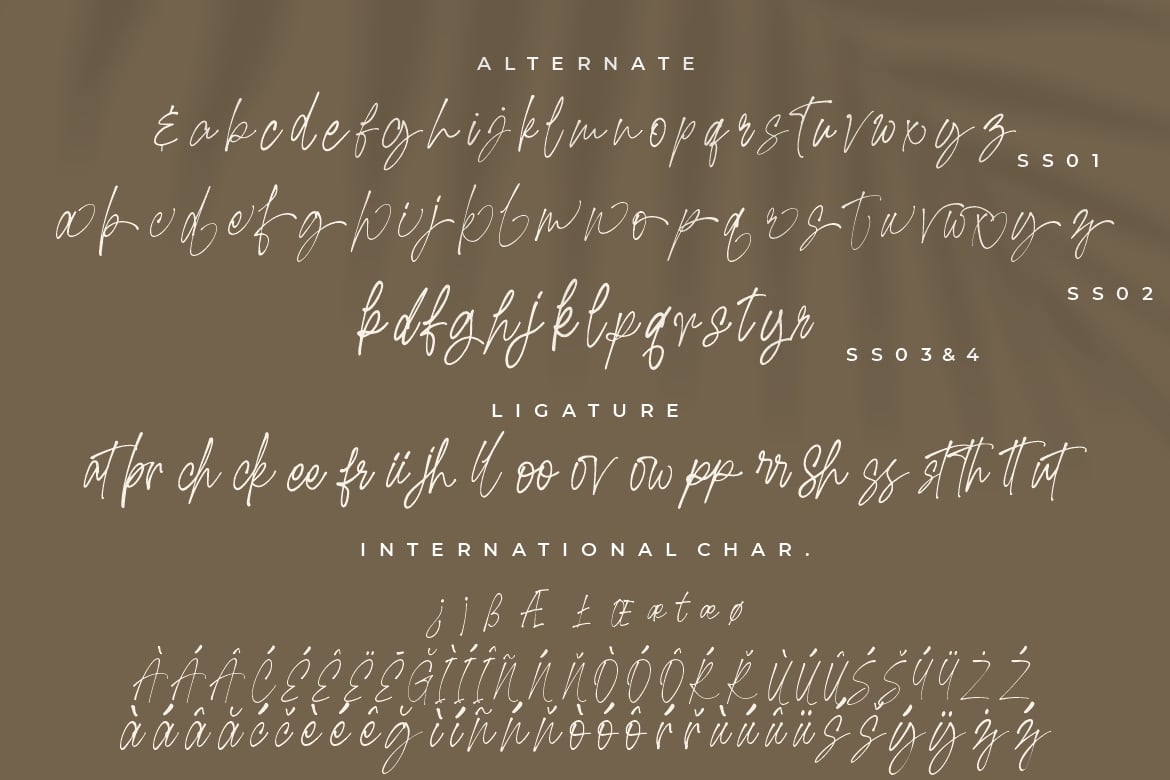 ALTERNATE
&abcdefghijklmnopqrstuvwxyz
SS01
abcdefghijklmnopqrstuvwxyz
SS02
bdfghjklpqrstyr
SS03&4
LIGATURE
at br ch ck ee fr ii jh ll oo ov ow pp rr sh ss st th tt ut
INTERNATIONAL CHAR.
¿ ¡ ß Æ Ł Œ æ ł œ ø
ÀÁÂĆÉÊËĒĞÌÍÎÑŃŇÒÓÔŔŘÙÚÛŚŠÝŸŻŹ
àáâăćčèéêğìíñńňòóôŕřùúûüśšýÿżź